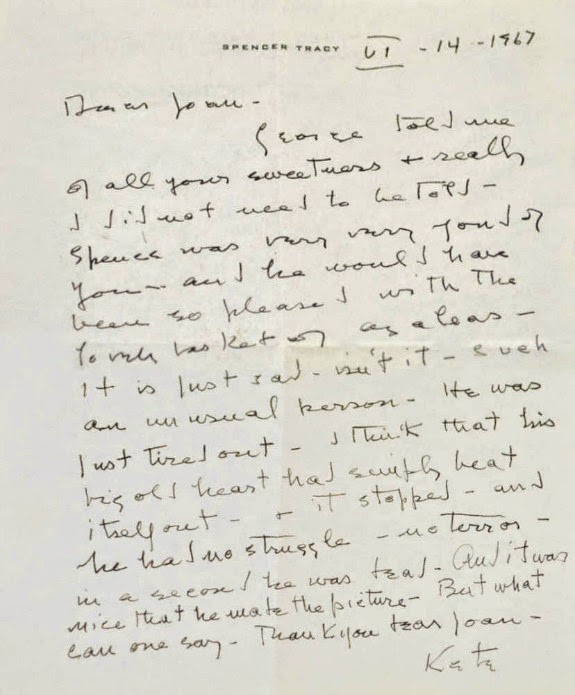 SPENCER TRACY VI - 14 - 1967
Dear Joan -
George told me
of all your sweetness + really
I did not need to be told -
Spence was very very fond of
you - and he would have
been so pleased with the
lovely basket of azaleas -
It is just sad - isn't it - such
an unusual person - He was
just tired out - I think that his
big old heart had simply beat
itself out - + it stopped - and
he had no struggle - no terror -
in a second he was dead - And it was
nice that he made the picture - But what
can one say - Thank you dear Joan -
Kate